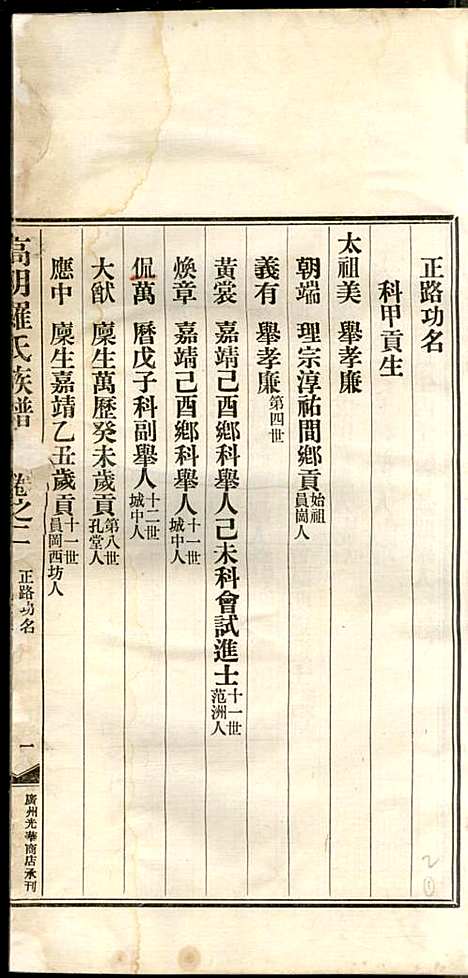 正路功名
科甲貢生
太祖美 舉孝廉
朝端 理宗淳祐間鄉貢 始祖 員崗人
義有 舉孝廉 第四世
黃裳 嘉靖己酉鄉科舉人己未科會試進士 十一世 范洲人
煥章 嘉靖己酉鄉科舉人 十一世 城中人
侃萬 曆戊子科副舉人 十二世 城中人
大猷 廩生萬歷癸未歲貢 第八世 孔堂人
應中 廩生嘉靖乙丑歲貢 十一世 員岡西坊人
高明羅氏族譜 卷之二 正路功名 一 廣州光華商店承刊
2
①